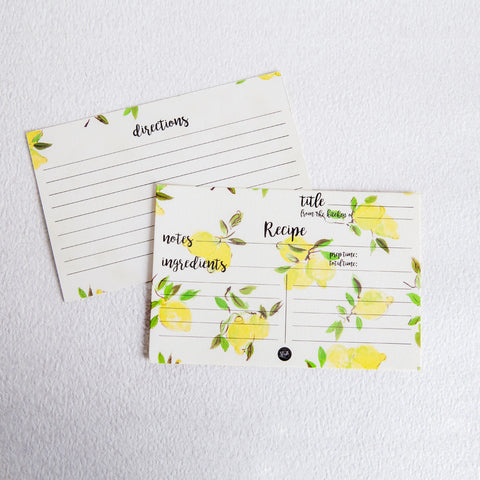 directions
title
from the kitchen of
Recipe
notes
prep time:
total time:
ingredients